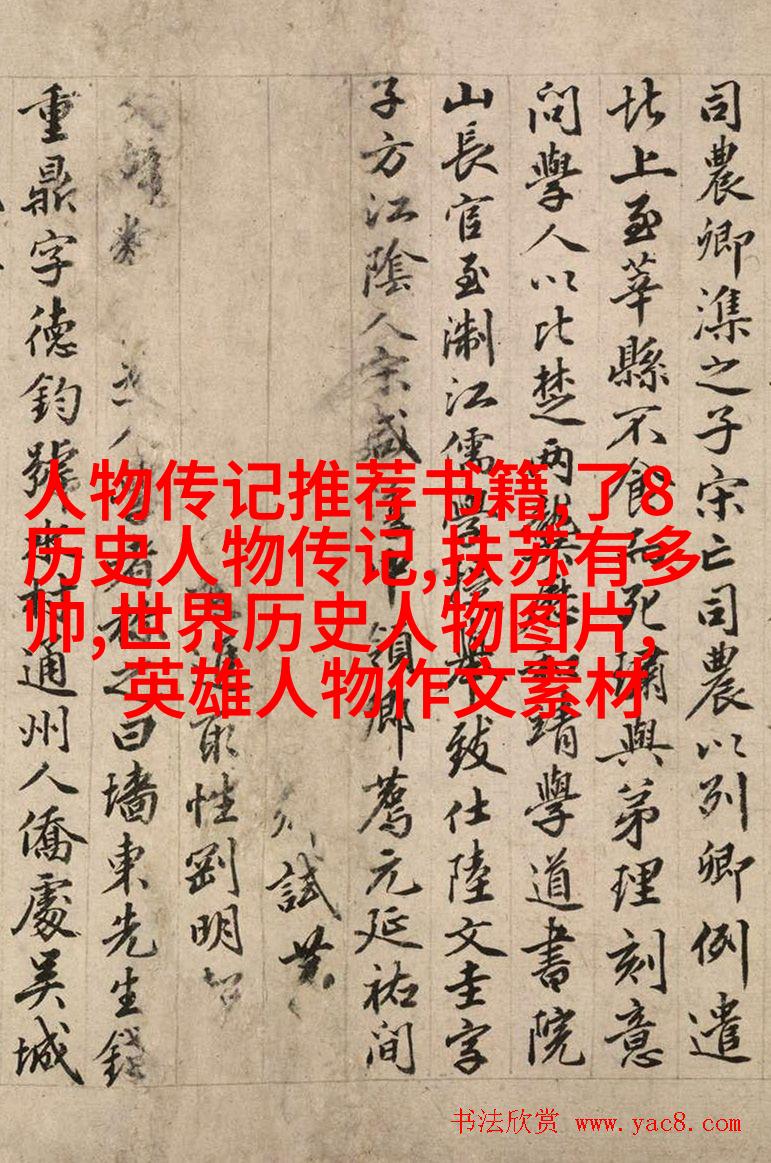 司農卿潗之子宋亡司農以列卿例遣
北上至莘縣不食而死璛與弟理刻意
問學人以比楚兩龔靖學道書院
山長官至淛江儒學提舉致仕陸文圭字
子方江陰人宋咸淳中領鄉薦元延祐間
試
性剛明
人之曰墻東先生錢
重鼎字德鈞號水村通州人僑處吳城
人物传记推荐书籍,了8
历史人物传记,扶苏有多
帅,世界历史人物图片,
英雄人物作文素材
书法欣赏 www.yac8.com